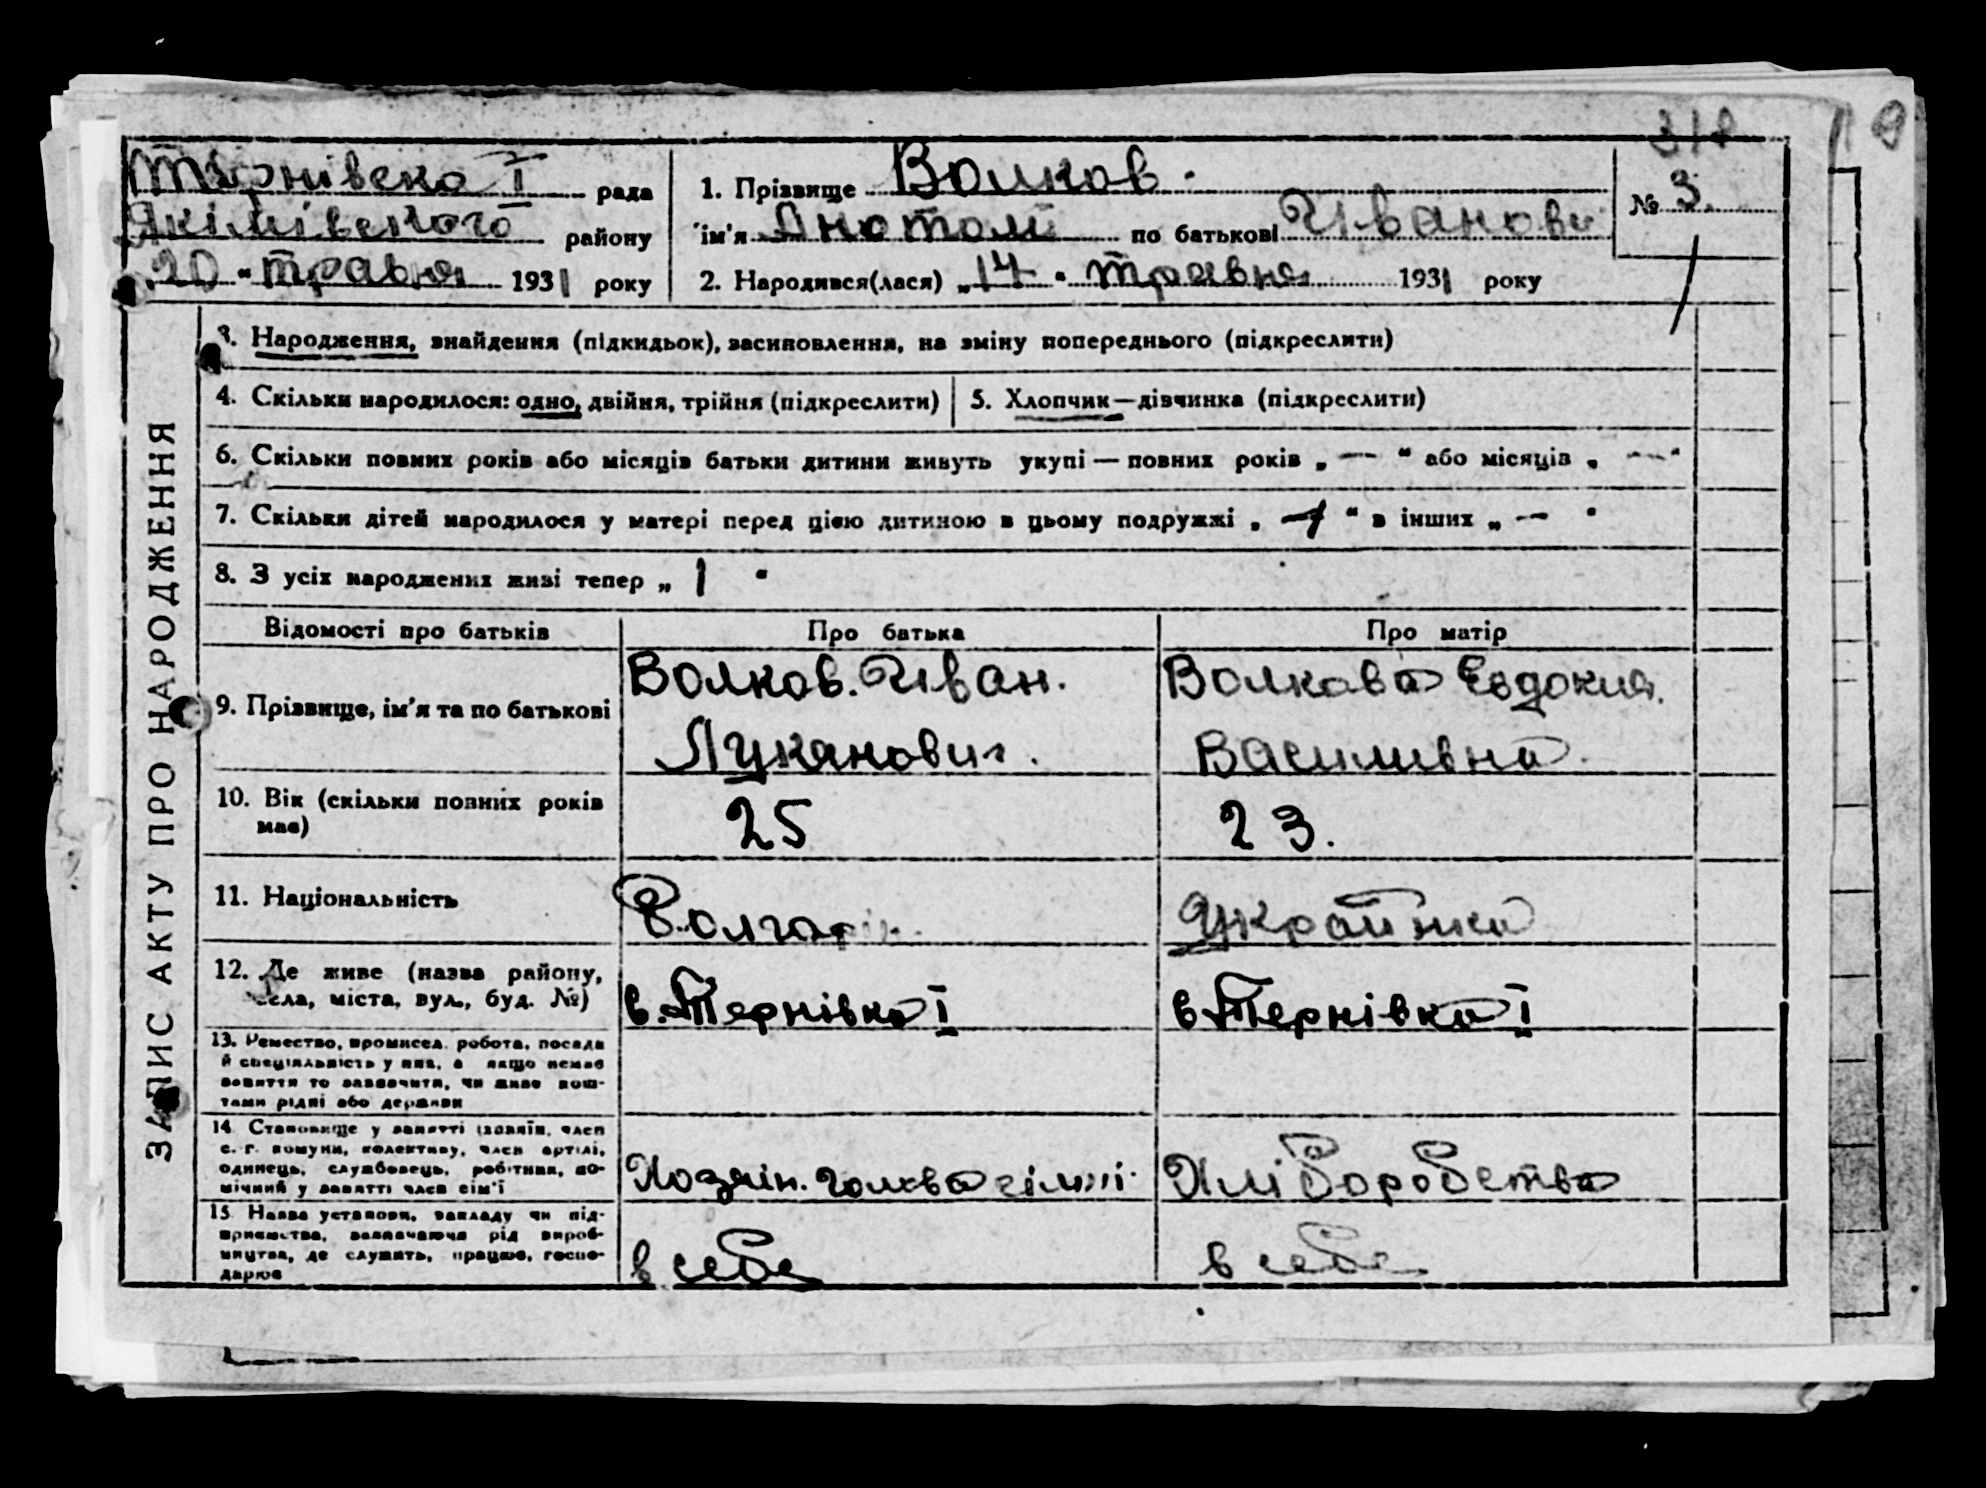 318 19
Тернівска І рада
Якімівського району
20 " травня 1931 року
1. Прізвище Волков.
ім'я Анотолі по батькові Іванови
№ 3.
2. Народився(лася) „ 14 " травня 1931 року
ЗАПИС АКТУ ПРО НАРОДЖЕННЯ
3. Народження, знайдення (підкидьок), засиновлення, на зміну попереднього (підкреслити)
4. Скільки народилося: одно, двійня, трійня (підкреслити)
5. Хлопчик—дівчинка (підкреслити)
6. Скільки повних років або місяців батьки дитини живуть укупі — повних років „ — " або місяців „ — "
7. Скільки дітей народилося у матері перед цією дитиною в цьому подружжі „ 1 " в інших „ — "
8. З усіх народжених живі тепер „ 1 "
Відомості про батьків Про батька Про матір
9. Прізвище, ім'я та по батькові
Волков. Іван.
Луканович.
Волкова Евдокия.
Василивна.
10. Вік (скільки повних років має)
25
23.
11. Національність
Болгарін.
Українка
12. Де живе (назва району, села, міста, вул., буд. №)
в. Тернівка І
в Тернівка І
13. Ремество, промисел, робота, посада
й спеціяльність у них, а якщо немає
заняття то зазначити, чи живе кош-
тами рідні або держави
14. Становище у занятті (хазяїн, член
с.-г. комуни, колективу, член артілі,
одинець, службовець, робітник, по-
мічний у занятті член сім'ї
Хозяін. голова сімні.
Хліборобства
15. Назва установи, закладу чи під-
приємства, зазначаючи рід вироб-
ництва, де служить, працює, госпо-
дарює
в себе
в себе